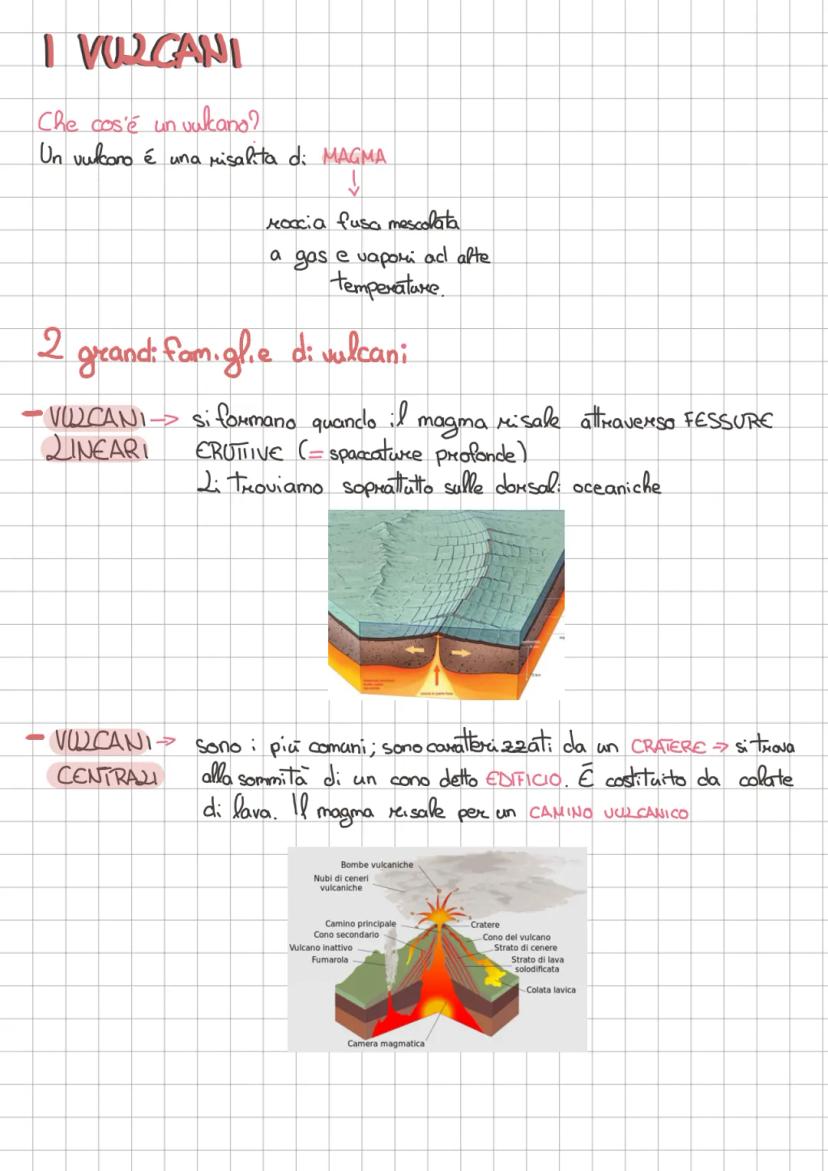 I VULCANI
Che cos'é un vulcano?
Un vulcano é una risalita di MAGMA
↓
roccia fusa mescolata
a gas e vapori ad alte
temperature.
2 grandi famiglie di vulcani
- VULCANI → si formano quando il magma risale attraverso FESSURE
LINEARI ERUTTIVE (= spaccature profonde)
Li troviamo soprattutto sulle dorsali oceaniche
- VULCANI → sono i più comuni; sono caratterizzati da un CRATERE → si trova
CENTRALI alla sommità di un cono detto EDIFICIO. É costituito da colate
di lava. Il magma risale per un CAMINO VULCANICO
Bombe vulcaniche
Nubi di ceneri
vulcaniche
Camino principale
Cratere
Cono secondario
Cono del vulcano
Vulcano inattivo
Strato di cenere
Fumarola
Strato di lava
solodificata
Colata lavica
Camera magmatica